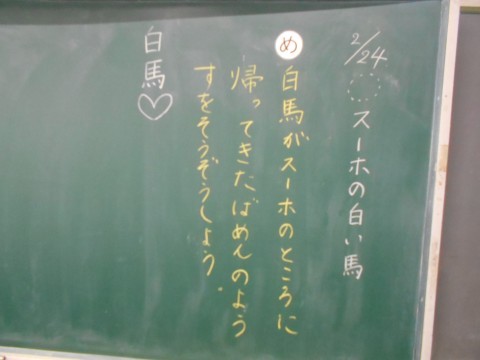 2/24
スーホの白い馬
め 白馬がスーホのところに
帰ってきたばめんのよう
すをそうぞうしよう。
白馬♡